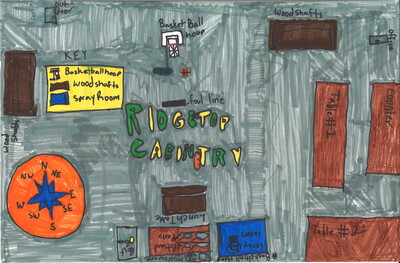 out
Door
Basket Ball
hoop
Wood shafts
office
KEY
Basketball hoop
wood shafts
spray Room
foul line
RIDGETOP
CABINETRY
wood
shafts
Table #1
counter
Lunch Table
N
NE
E
SE
S
SW
W
NW
Table # 2
spray
room